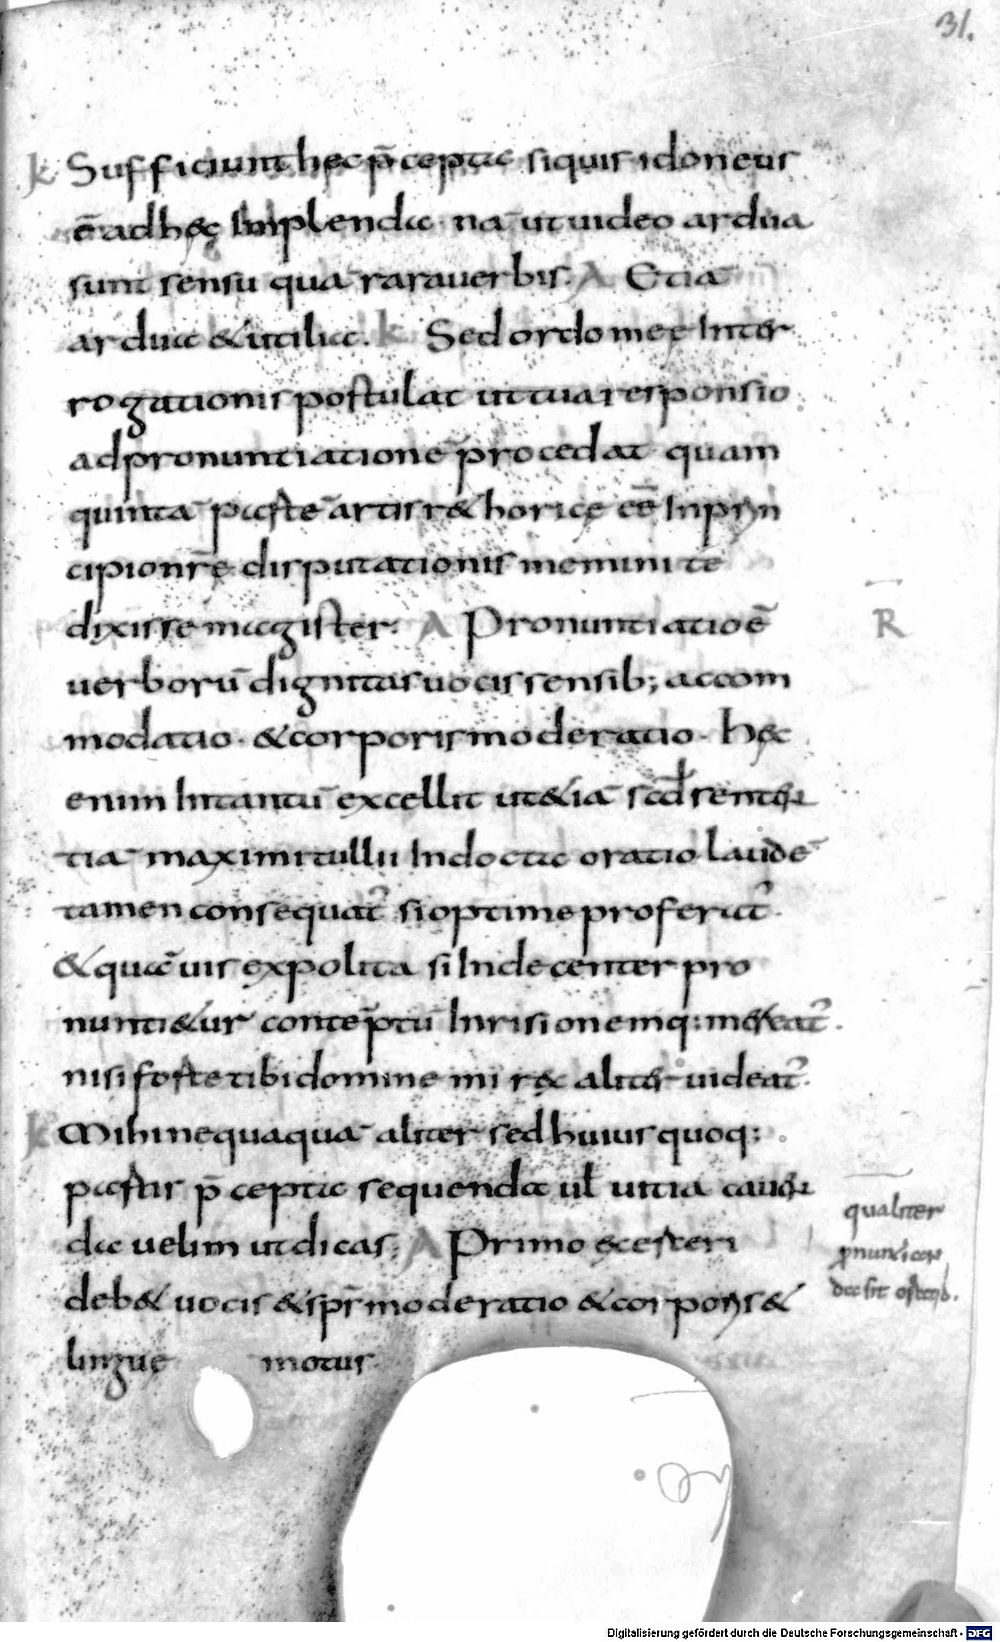 31.
k Sufficiunt hęc p̄cepta siquis idoneus
ē ad hęc Implenda · nā ut uideo ardua
sunt sensu quā rara uerbis. A Etiā
ardua & utilia. k Sed ordo meę Inter
rogationis postulat ut tua responsio
ad pronuntiationē procedat quam
quintā partē artis r&horicę eē In pryn
cipio nr̄ę disputationis memini te
dixisse magister. A Pronuntiatio ē
R
uerborū dignitas uocis sensib; accom
modatio · & corporis moderatio · hęc
enim Intantū excellit ut &iā scd̄ senten
tiā maximi tullii Indocta oratio laudē
tamen consequat̄ si optime proferat̄.
& quāuis expolita si Indecenter pro
nunti&ur contēptū Inrisionemq; mereat̄.
nisi forte tibi domine mi rex aliter uideat̄.
k Mihi nequaquā aliter sed huius quoq;
partis p̄cepta sequenda ul uitia cauen
da uelim ut dicas. A Primo exerceri
deb& uocis & spr̄ moderatio & corporis &
linguę motus
qualiter
p̄nuntian
da sit ostend.
Digitalisierung gefördert durch die Deutsche Forschungsgemeinschaft - DFG